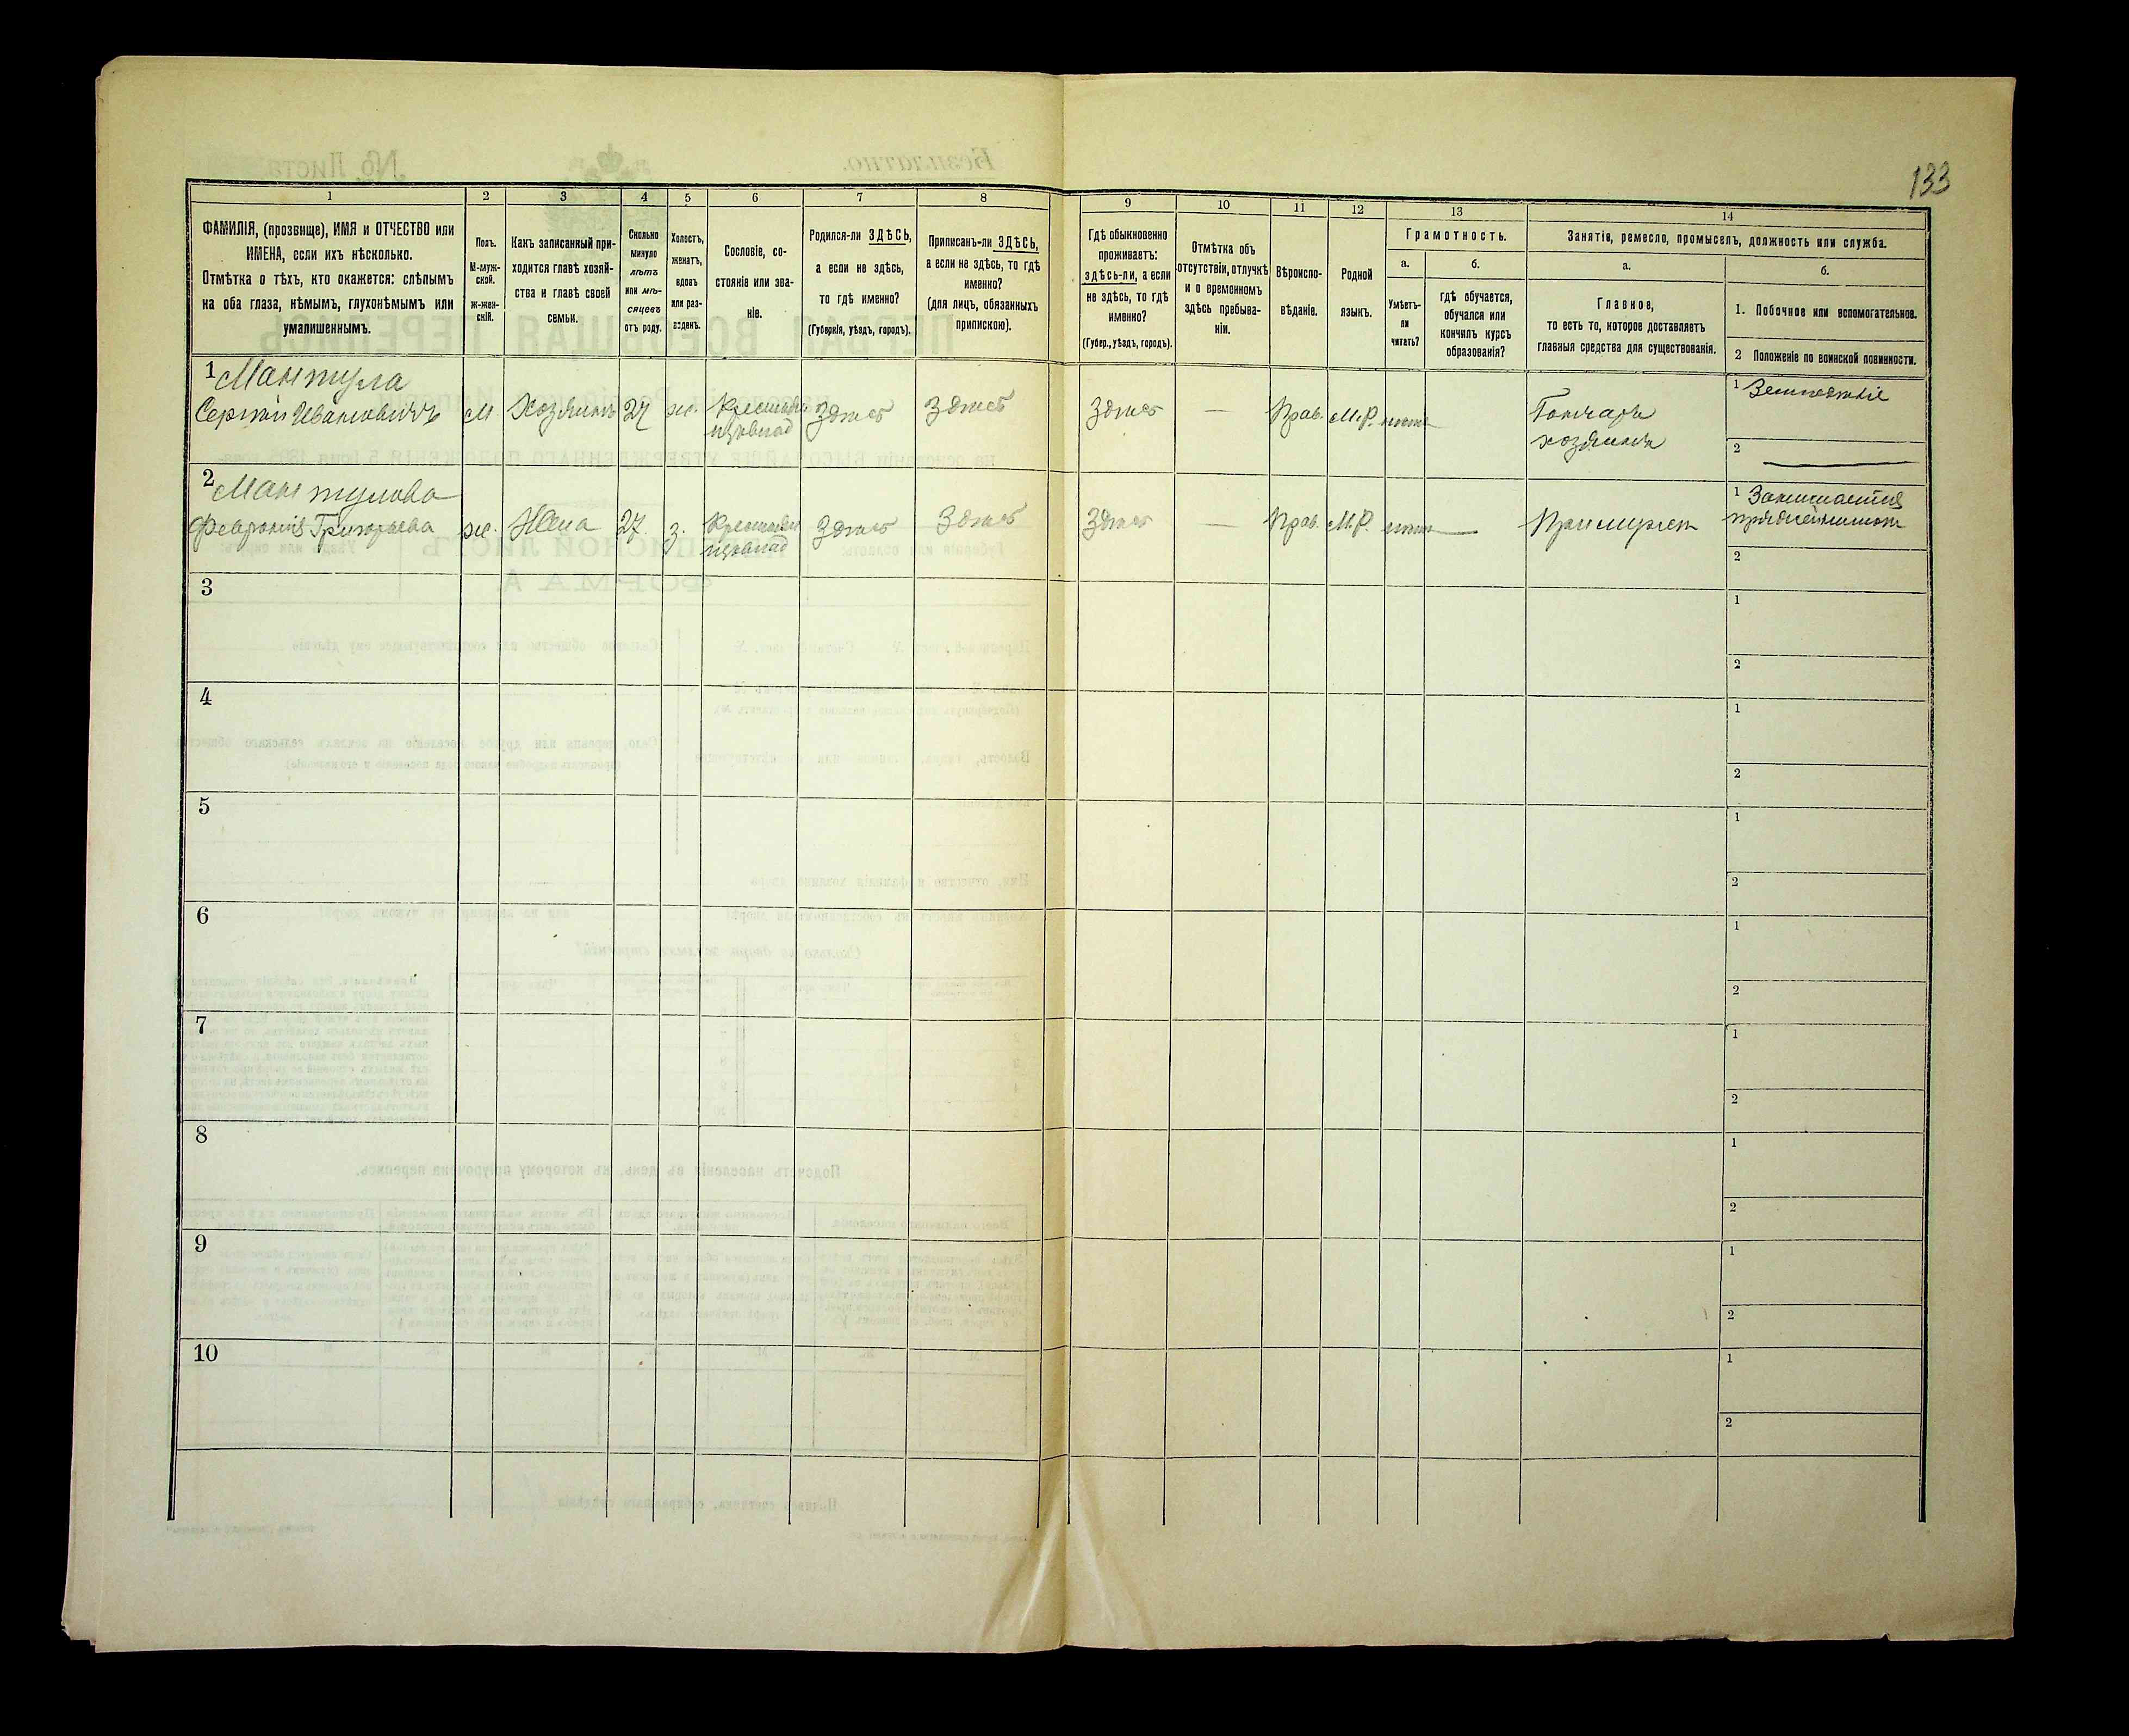 133
1
2
3
4
5
6
7
8
9
10
11
12
13
14
ФАМИЛІЯ, (прозвище), ИМЯ и ОТЧЕСТВО или
ИМЕНА, если ихъ нѣсколько.
Отмѣтка о тѣхъ, кто окажется: слѣпымъ
на оба глаза, нѣмымъ, глухонѣмымъ или
умалишеннымъ.
Полъ.
М-муж-
ской.
ж-жен-
скій.
Какъ записанный при-
ходится главѣ хозяй-
ства и главѣ своей
семьи.
Сколько
минуло
лѣтъ
или мѣ-
сяцевъ
отъ роду.
Холостъ,
женатъ,
вдовъ
или раз-
веденъ.
Сословіе, со-
стояніе или зва-
ніе.
Родился-ли ЗДѢСЬ,
а если не здѣсь,
то гдѣ именно?
(Губернія, уѣздъ, городъ).
Приписанъ-ли ЗДѢСЬ,
а если не здѣсь, то гдѣ
именно?
(для лицъ, обязанныхъ
припискою).
Гдѣ обыкновенно
проживаетъ:
здѣсь-ли, а если
не здѣсь, то гдѣ
именно?
(Губер., уѣздъ, городъ).
Отмѣтка объ
отсутствіи, отлучкѣ
и о временномъ
здѣсь пребыва-
ніи.
Вѣроиспо-
вѣданіе.
Родной
языкъ.
Грамотность.
а.
Умѣетъ-
ли
читать?
б.
гдѣ обучается,
обучался или
кончилъ курсъ
образованія?
Занятіе, ремесло, промыселъ, должность или служба.
а.
Главное,
то есть то, которое доставляетъ
главныя средства для существованія.
б.
1. Побочное или вспомогательное.
2 Положеніе по воинской повинности.
1 Мантула
Сергѣй Ивановичъ
м
Хозяинъ
27
ж.
здѣсь
здѣсь
здѣсь
—
Прав.
М.Р.
нѣтъ
Гончаръ
хозяинъ
1 Земледѣліе
2
2 Мантулова
Февронія Григорьева
ж.
Жена
27.
з.
здѣсь
здѣсь
здѣсь
—
Прав.
М.Р.
нѣтъ
При мужѣ
1 Занимается
2
3
1
2
4
1
2
5
1
2
6
1
2
7
1
2
8
1
2
9
1
2
10
1
2